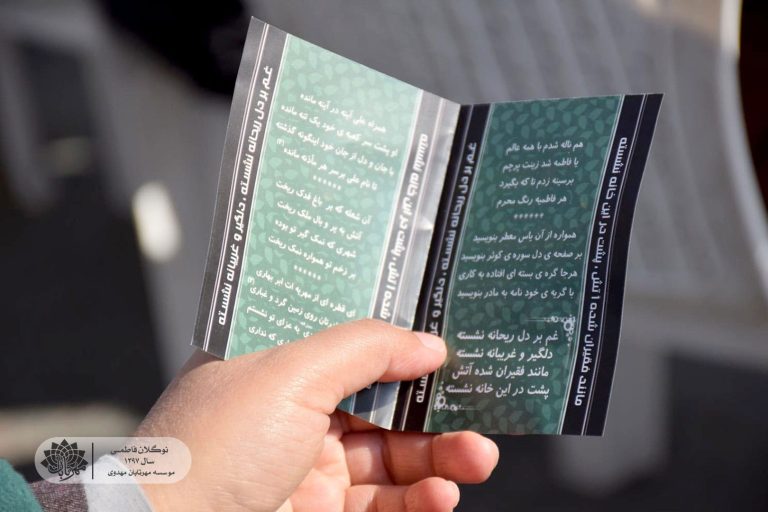 هم ناله شدم با همه عالم
یا فاطمه شد زینت پرچم
بر سینه زدم تا که بگیرد
هر فاطمیه رنگ محرم
******
همواره از آن یاس معطر بنویسید
بر صفحه ی دل سوره ی کوثر بنویسید
هرجا گره ی بسته ای افتاده به کاری
با گریه ی خود نامه به مادر بنویسید
غم بر دل ریحانه نشسته
دلگیر و غریبانه نشسته
مانند فقیران شده آتش
پشت در این خانه نشسته
مانند فقیران شده آتش ، پشت در این خانه نشسته
غم بر دل ریحانه نشسته ، دلگیر و غریبانه نشسته
همرنه علی آینه در آینه مانده
او پشت سر کعبه ی خود یک تنه مانده
با جان و دل از جان خود اینگونه گذشته
تا نام علی بر سر هر مأذنه مانده
******
آن شعله که بر باغ فدک ریخت
آتش به پر و بال ملک ریخت
شهری که نمک گیر تو بوده
بر زخم تو همواره نمک ریخت
******
ای قطره ای از مهریه ات ابر بهاری
روی زمین گرد و غباری
به عزای تو نشستم
که نداری
غم بر دل ریحانه نشسته ، دلگیر و غریبانه نشسته
شده آتش ، پشت در این خانه نشسته
نوگلان فاطمی
سال ۱۳۹۷
موسسه مهرتابان مهدوی